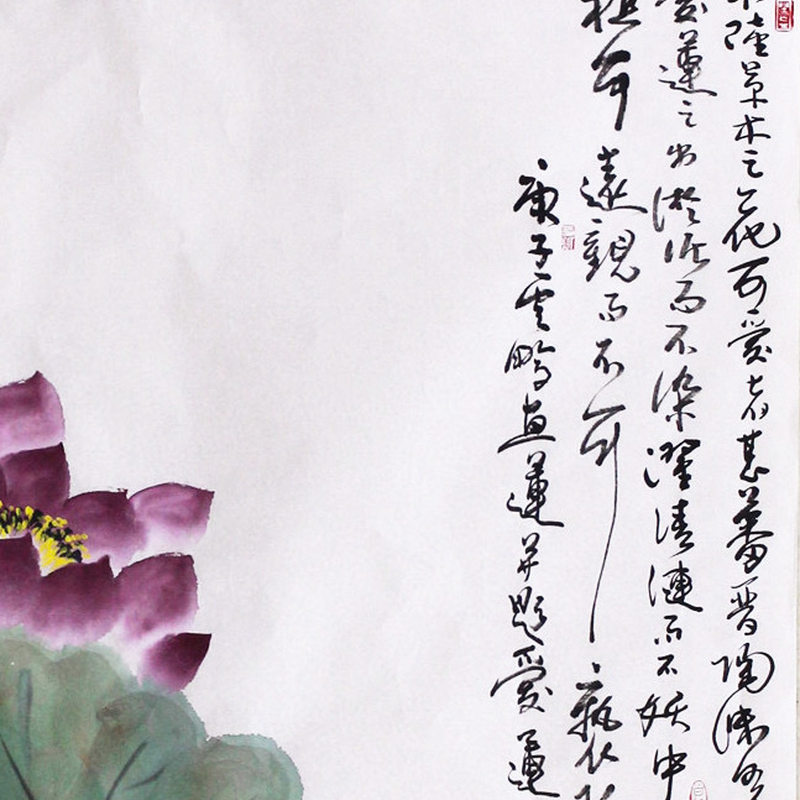 陸草木之花可愛者甚蕃晋陶渊
愛蓮之出淤泥而不染濯清漣而不妖中
植可遠觀而不可褻
庚子雲鵬畫蓮并題愛蓮